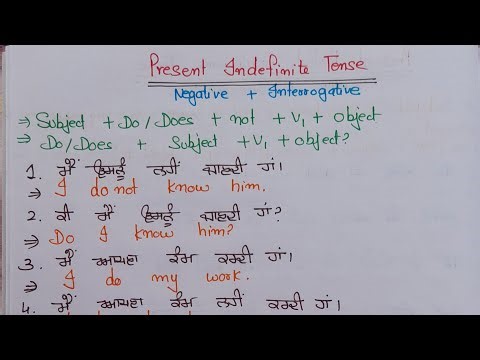 Present Indefinite Tense
Negative + Interrogative
⇒ Subject + Do/Does + not + V₁ + object
⇒ Do/Does + Subject + V₁ + object?
1. ਮੈਂ ਉਸਨੂੰ ਨਹੀਂ ਜਾਣਦੀ ਹਾਂ।
⇒ I do not know him.
2. ਕੀ ਮੈਂ ਉਸਨੂੰ ਜਾਣਦੀ ਹਾਂ?
⇒ Do I know him?
3. ਮੈਂ ਆਪਣਾ ਕੰਮ ਕਰਦੀ ਹਾਂ।
⇒ I do my work.
4. ਮੈਂ ਆਪਣਾ ਕੰਮ ਨਹੀਂ ਕਰਦੀ ਹਾਂ।